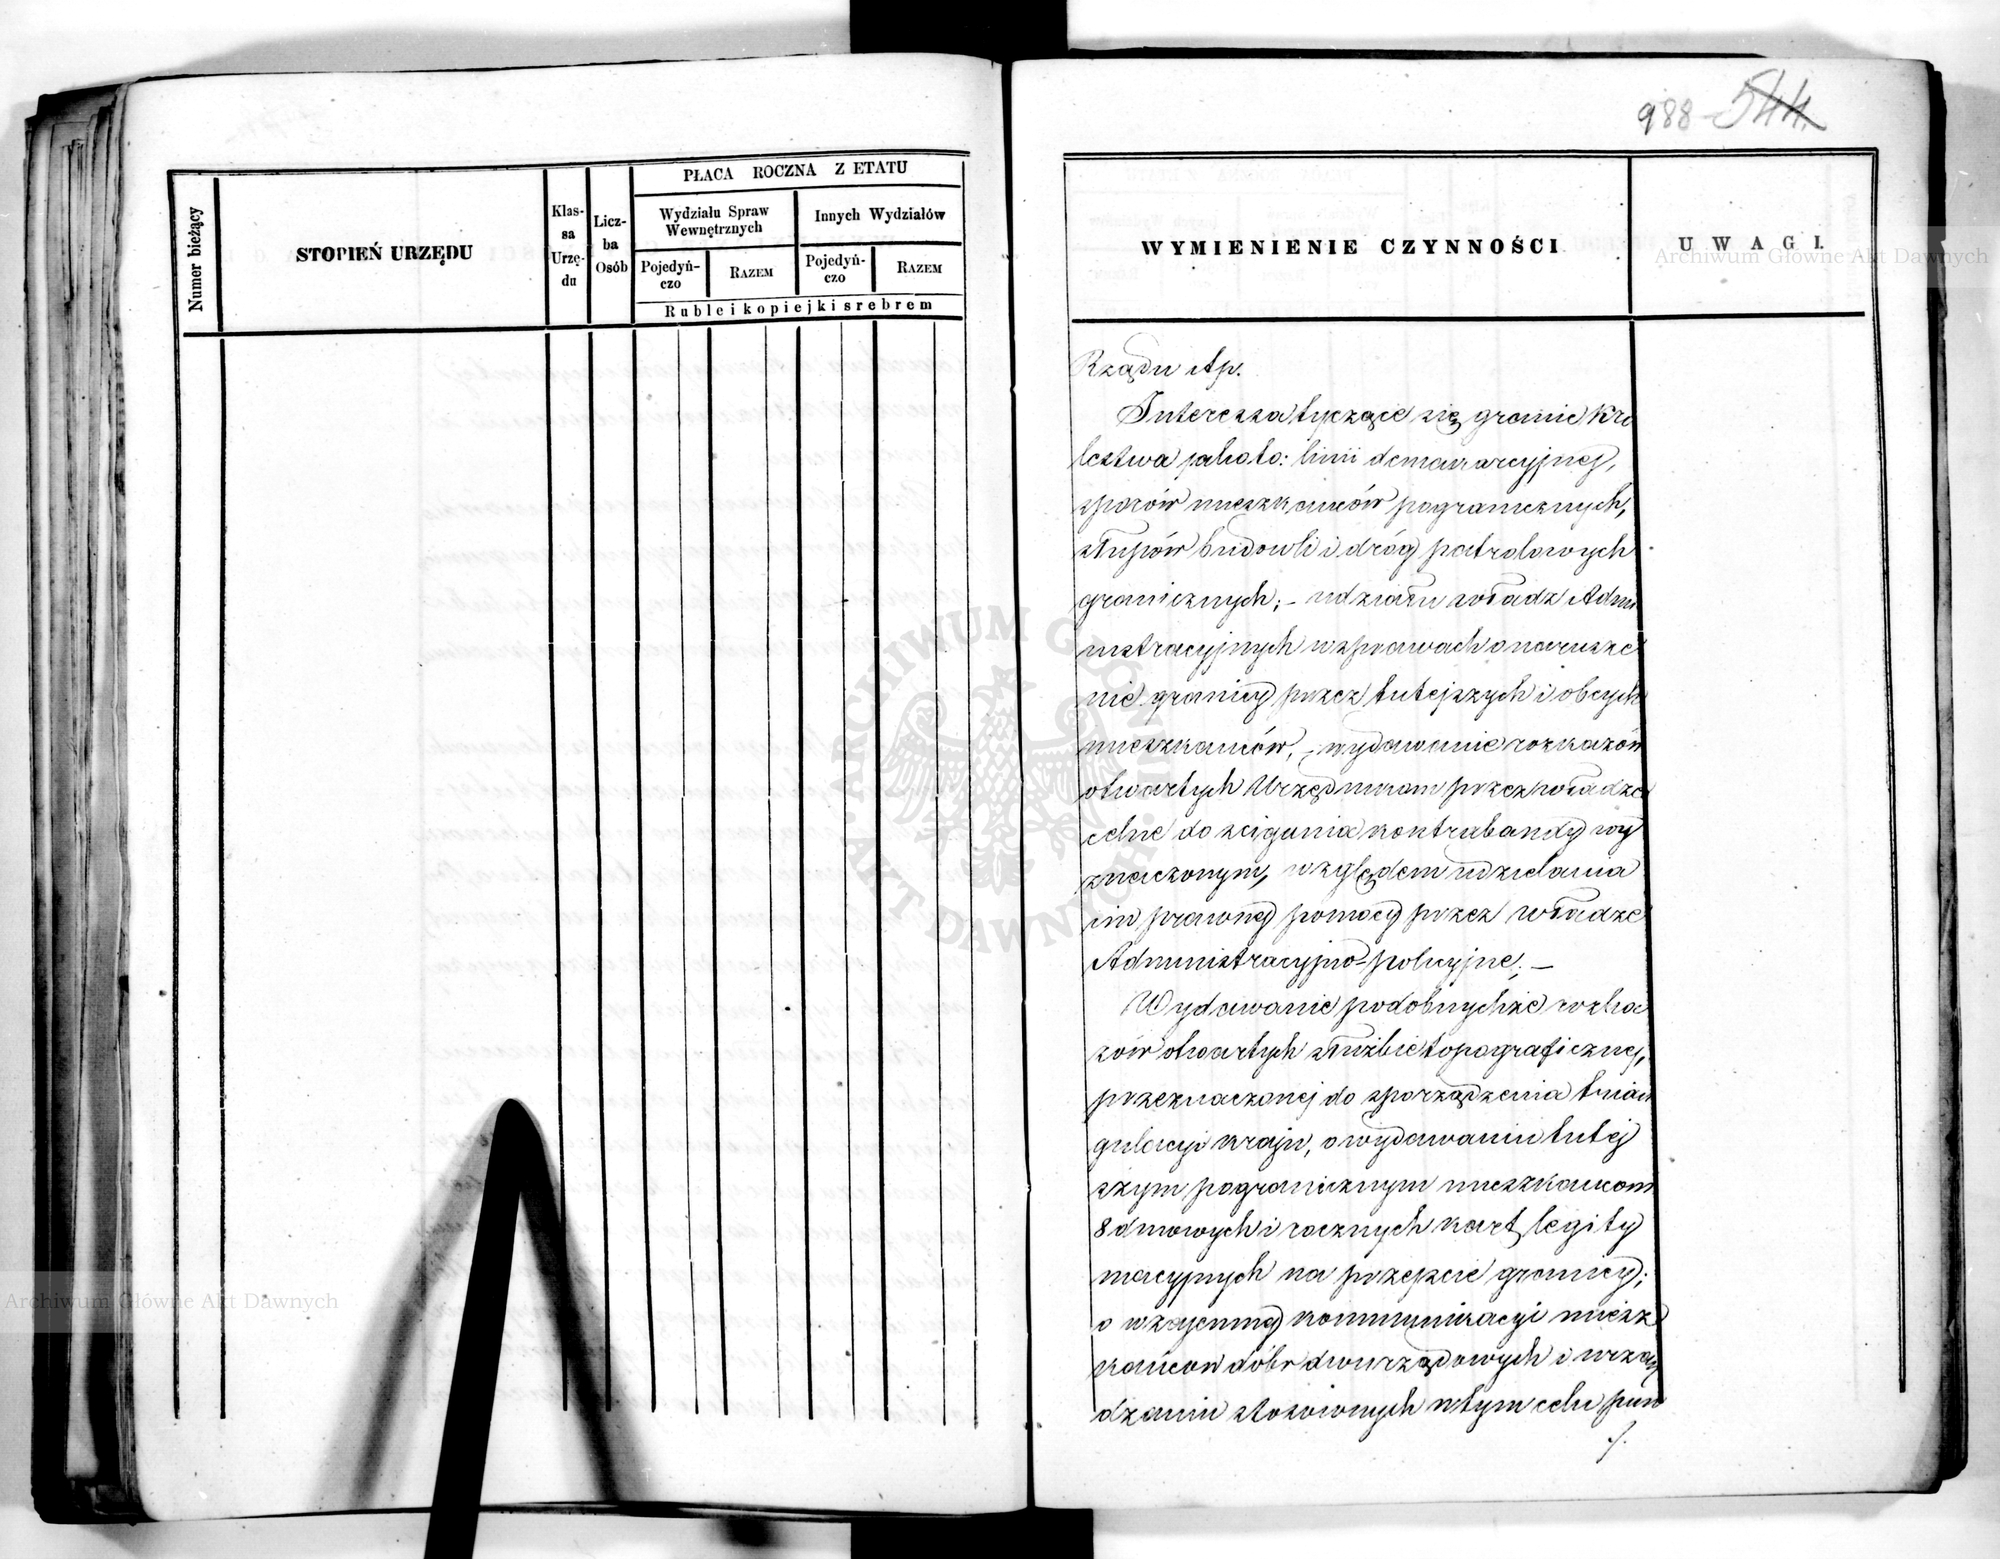 Numer bieżący
STOPIEŃ URZĘDU
Klas-
sa
Urzę-
du
Licz-
ba
Osób
PŁACA ROCZNA Z ETATU
Wydziału Spraw
Wewnętrznych
Innych Wydziałów
Pojedyń-
czo
RAZEM
Pojedyń-
czo
RAZEM
Ruble i kopiejki srebrem
988 544.
WYMIENIENIE CZYNNOŚCI
UWAGI.
Rządu itp.
Interessa tyczące się granic Kró
lestwa jakoto: linii demarkacyjnej,
sporów mieszkańców pogranicznych,
słupów budowli i dróg patrolowych
granicznych; – udziału władz Admi
nistracyjnych w sprawach o narusze
nie granicy przez tutejszych i obcych
mieszkańców, – wydawanie rozkazów
otwartych Urzędnikom przez władze
celne do ścigania kontrabandy wy
znaczonym, względem udzielania
im prawnej pomocy przez władze
Administracyjno-policyjne; –
Wydawanie podobnychże rozka
zów otwartych służbie topograficznej,
przeznaczonej do sporządzenia trian
gulacyi kraju, o wydawaniu tutej
szym pogranicznym mieszkańcom
8 dniowych i rocznych kart legity
macyjnych na przejście granicy;
o wzajemnej kommunikacyi miesz
kańców dóbr dwurządowych i urzą
dzaniu stosownych w tym celu pun
/.
ARCHIWUM GŁÓWNE AKT DAWNYCH
Archiwum Główne Akt Dawnych
Archiwum Główne Akt Dawnych